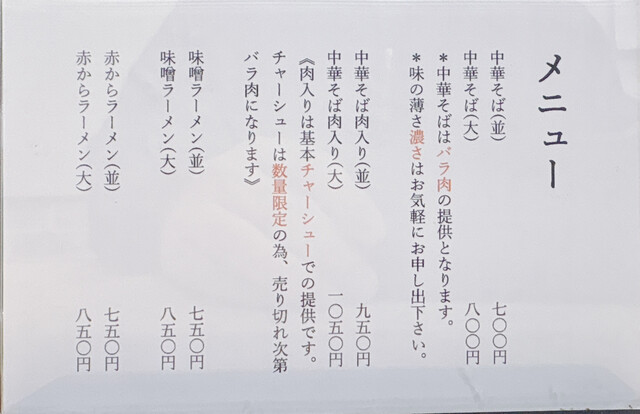 メニュー
中華そば(並) 七〇〇円
中華そば(大) 八〇〇円
＊中華そばはバラ肉の提供となります。
＊味の薄さ濃さはお気軽にお申し出下さい。
中華そば肉入り(並) 九五〇円
中華そば肉入り(大) 一〇五〇円
《肉入りは基本チャーシューでの提供です。
チャーシューは数量限定の為、売り切れ次第
バラ肉になります》
味噌ラーメン(並) 七五〇円
味噌ラーメン(大) 八五〇円
赤からラーメン(並) 七五〇円
赤からラーメン(大) 八五〇円